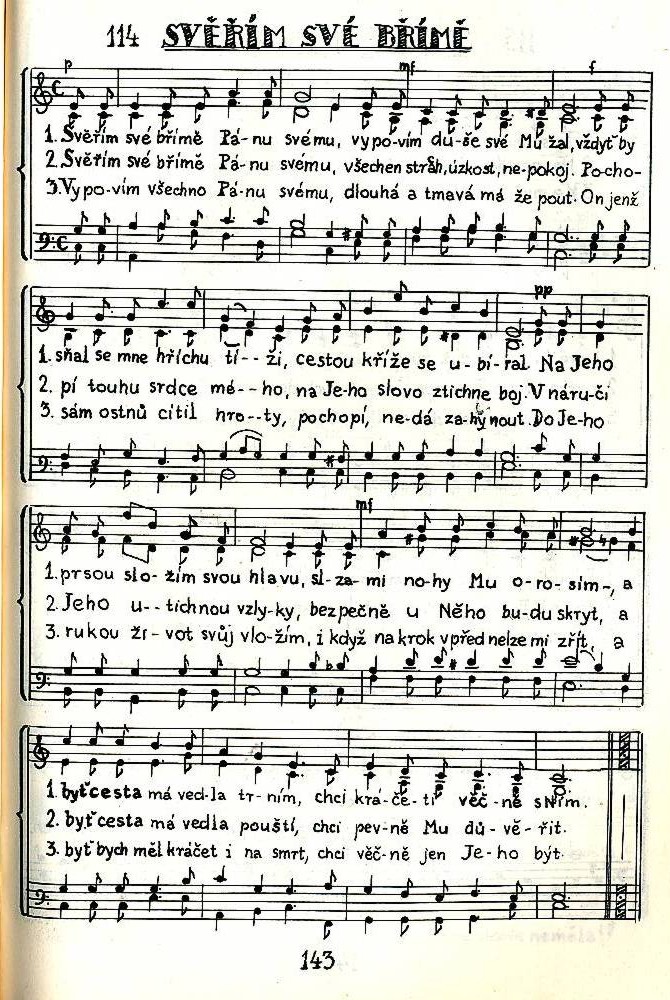 114 SVĚŘÍM SVÉ BŘÍMĚ
p mf f
1. Svěřím své břímě Pá-nu svému, vypo-vím du-še své Mu žal, vždyť by
2. Svěřím své břímě Pá-nu svému, všechen strach, úzkost, ne-pokoj. Po-cho-
3. Vypo-vím všechno Pá-nu svému, dlouhá a tmavá má že pout. On jenž
pp
1. sňal se mne hříchu tí--ži, cestou kříže se u-bí-ral. Na Jeho
2. pí touhu srdce mé--ho, na Je-ho slovo ztichne boj. V náru-čí
3. sám ostnů cítil hro--ty, pochopí, ne-dá za-hynout. Do Je-ho
mf
1. prsou slo-žím svou hlavu, sl-za-mi no-hy Mu o-ro-sím-, a
2. Jeho u--tichnou vzly-ky, bezpečně u Něho bu-du skryt, a
3. rukou ži-vot svůj vlo-žím, i když na krok vpřed nelze mi zřít, a
1. byť cesta má ved-la tr-ním, chci krá-če-ti věč-ně s Ním.
2. byť cesta má vedla pouští, chci pev-ně Mu dů-vě-řit.
3. byť bych měl kráčet i na smrt, chci věč-ně jen Je-ho být.
143